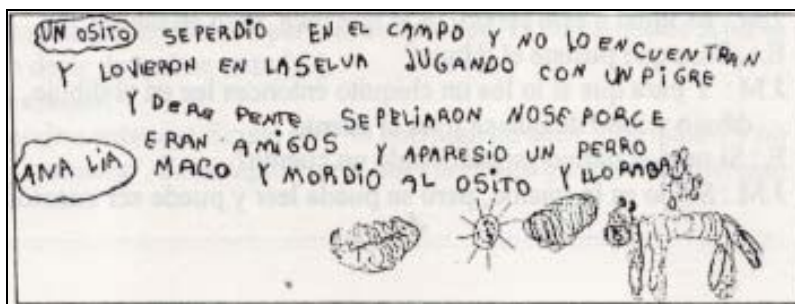 UN OSITO SEPERDIO EN EL CAMPO Y NO LO ENCUENTRAN
Y LOVIERON EN LASELVA JUGANDO CON UN PIGRE
Y DERE PENTE SEPELIARON NOSE PORCE
ERAN AMIGOS Y APARESIO UN PERRO
ANA LIA MALO Y MORDIO AL OSITO Y LLORABA